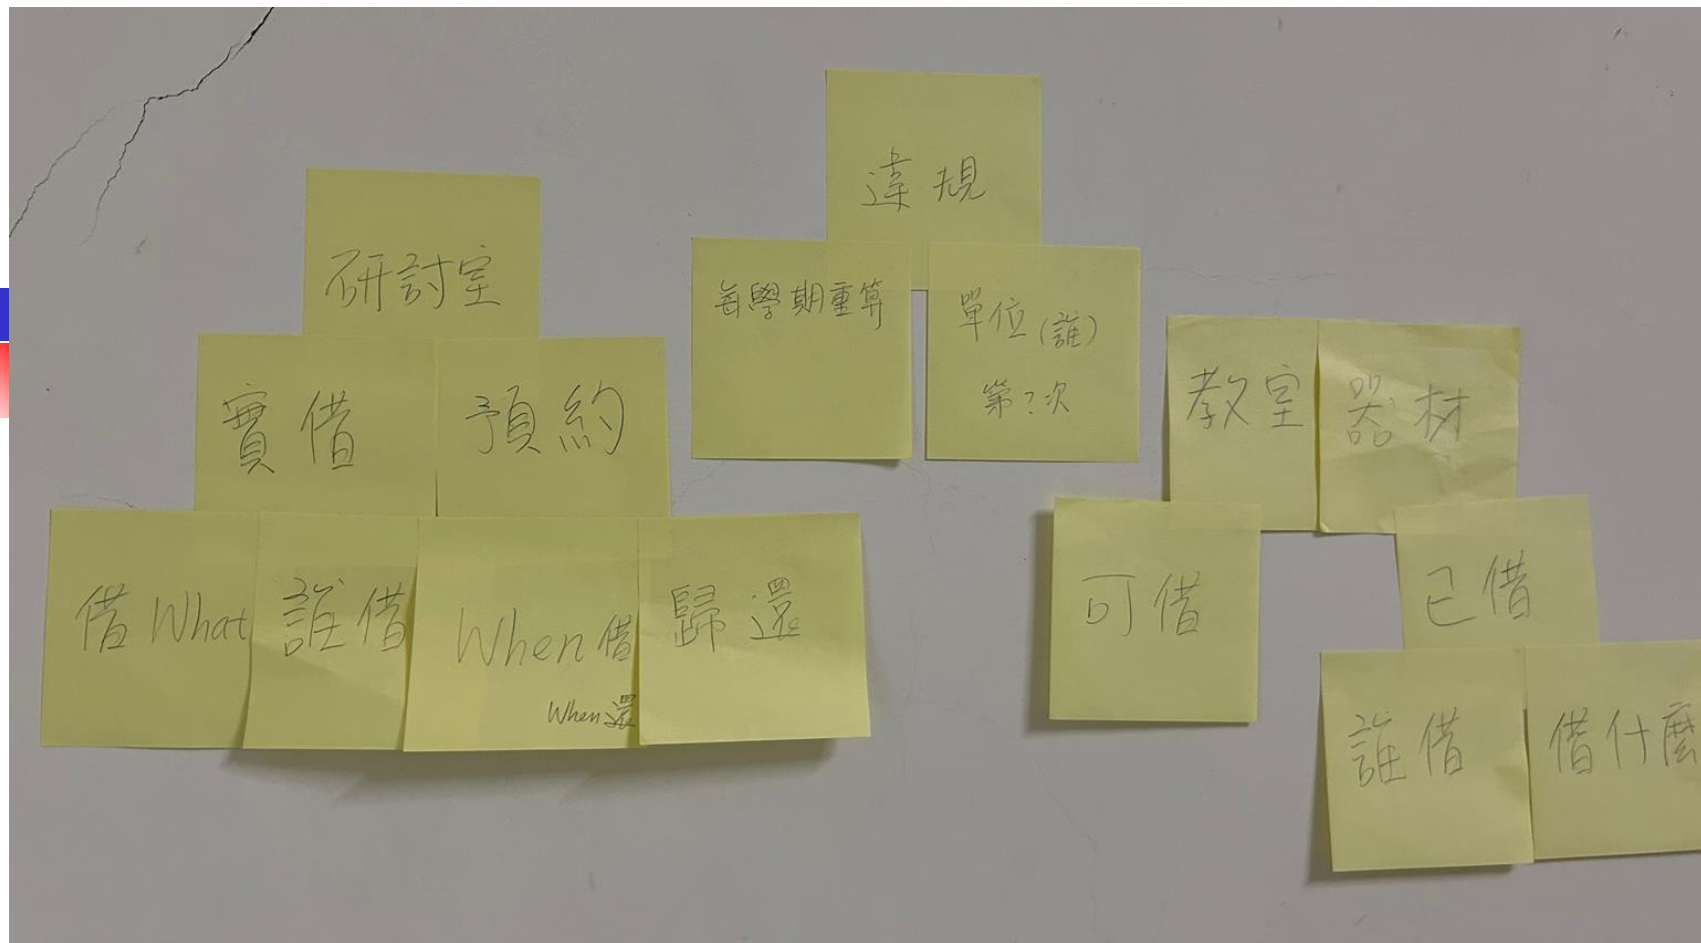 研討室
實借
預約
借What
誰借
When借
When還
歸還
違規
每學期重算
單位(誰)
第?次
教室
器材
可借
已借
誰借
借什麼